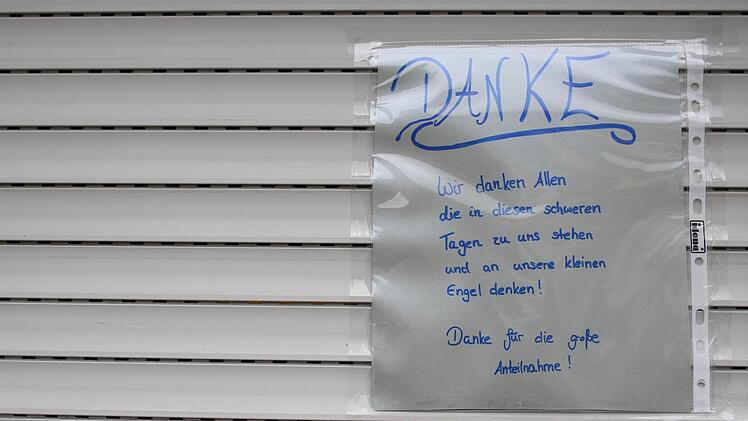 DANKE
Wir danken Allen
die in diesen schweren
Tagen zu uns stehen
und an unsere kleinen
Engel denken!
Danke für die große
Anteilnahme!